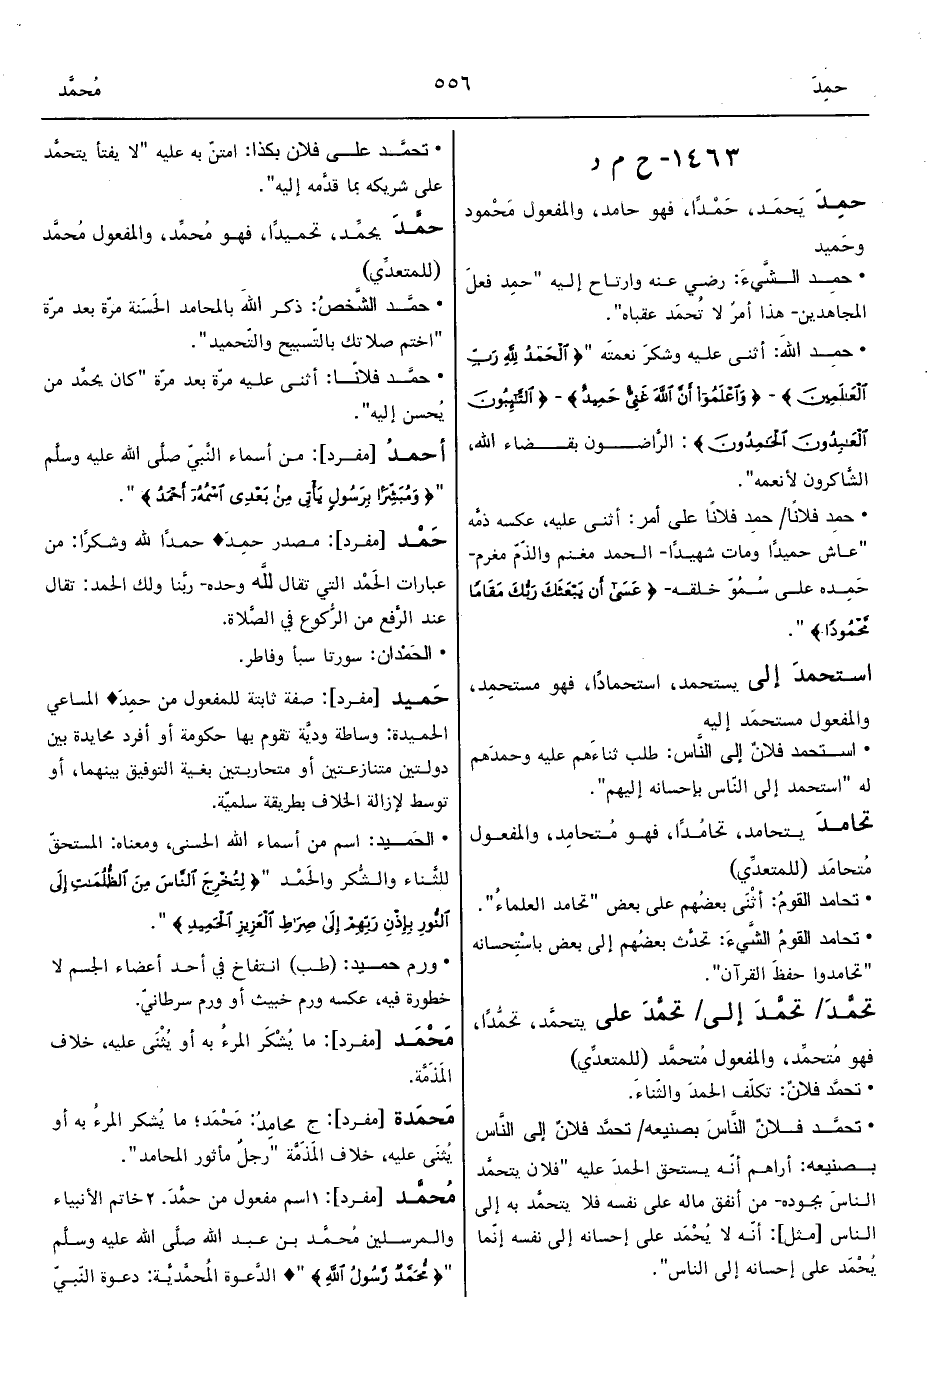 حمِدَ
٥٥٦
مُحمَّد
١٤٦٣- ح م د
حمِدَ يَحمَد، حَمْدًا، فهو حامد، والمفعول مَحْمود
وحَميد
• حمِـد الـشَّيءَ: رضي عنه وارتاح إليه "حمِد فعلَ
المجاهدين- هذا أمرٌ لا تُحمَد عقباه".
• حمِـد اللهَ: أثنى عليه وشكرَ نعمتَه "﴿ ٱلْحَمْدُ لِلَّهِ رَبِّ
ٱلْعَـٰلَمِينَ ﴾ - ﴿ وَٱعْلَمُوٓا۟ أَنَّ ٱللَّهَ غَنِىٌّ حَمِيدٌ ﴾ - ﴿ ٱلتَّـٰٓئِبُونَ
ٱلْعَـٰبِدُونَ ٱلْحَـٰمِدُونَ ﴾ : الرَّاضـــون بقــضاء الله،
الشَّاكرون لأنعمه".
• حمِد فلانًا/ حمِد فلانًا على أمر: أثنى عليه، عكسه ذمَّه
"عـاش حميدًا ومات شهيدًا- الحمد مغنـم والذّمّ مغرم-
حَمِـده علـى سُـمُوّ خلقـه- ﴿ عَسَىٰٓ أَن يَبْعَثَكَ رَبُّكَ مَقَامًا
مَّحْمُودًا ﴾ ".
استحمدَ إلى يستحمد، استحمادًا، فهو مستحمِد،
والمفعول مستحمَد إليه
• اسـتحمد فلانٌ إلى النَّاس: طلب ثناءَهم عليه وحمدَهم
له "استحمد إلى النّاس بإحسانه إليهم".
تحامدَ يـتحامد، تحامُدًا، فهـو مُـتحامِد، والمفعـول
مُتحامَد (للمتعدِّي)
• تحامد القومُ: أثْنَى بعضُهم على بعض "تحامد العلماءُ".
• تحامد القومُ الشَّيءَ: تحدَّث بعضُهم إلى بعض باسْتِحسانه
"تحامدوا حفظَ القرآن".
تحمَّدَ/ تحمَّـدَ إلـى/ تحمَّدَ على يتحمَّد، تحمُّدًا،
فهو مُتحمِّد، والمفعول مُتحمَّد (للمتعدِّي)
• تحمَّد فلانٌ: تكلّف الحمدَ والثَّناءَ.
• تحمَّـد فـلانٌ النَّاسَ بصنيعه/ تحمَّد فلانٌ إلى النَّاس
بـصنيعه: أراهـم أنّـه يـستحق الحمدَ عليه "فلان يتحمَّد
الناسَ بجوده- من أنفق ماله على نفسه فلا يتحمَّد به إلى
الناس [مثل]: أنّه لا يُحْمَد على إحسانه إلى نفسه إنَّما
يُحْمَد على إحسانه إلى الناس".
• تحمَّـد علـى فلان بكذا: امتنّ به عليه "لا يفتأ يتحمَّد
على شريكه بما قدَّمه إليه".
حمَّدَ يحمِّد، تحميدًا، فهـو مُحمِّد، والمفعول مُحمَّد
(للمتعدِّي)
• حمَّـد الشَّخصُ: ذكـر اللهَ بالمحامد الحَسَنة مرّة بعد مرّة
"اختم صلاتك بالتّسبيح والتّحميد".
• حمَّـد فلانًـا: أثنـى علـيه مرّة بعد مرّة "كان يحمِّد من
يُحسن إليه".
أحمدُ [مفـرد]: مـن أسماء النَّبيّ صلَّى الله عليه وسلَّم
"﴿ وَمُبَشِّرًۢا بِرَسُولٍ يَأْتِى مِنۢ بَعْدِى ٱسْمُهُۥٓ أَحْمَدُ ﴾ ".
حَمْد [مفرد]: مـصدر حمِدَ♦ حمدًا لله وشكرًا: من
عبارات الحَمْد التي تقال للَّه وحده- ربَّنا ولك الحمد: تقال
عند الرَّفع من الرُّكوع في الصَّلاة.
• الحَمْدان: سورتا سبأ وفاطر.
حَميد [مفـرد]: صفة ثابتة للمفعول من حمِدَ♦ المساعي
الحميدة: وساطة وديَّة تقوم بها حكومة أو أفرد محايدة بين
دولـتين متنازعـتين أو متحاربـتين بغية التوفيق بينهما، أو
توسط لإزالة الخلاف بطريقة سلميّة.
• الحَمـيد: اسم من أسماء الله الحسنى، ومعناه: المستحقّ
للثَّـناء والـشُّكر والحَمْـد "﴿ لِتُخْرِجَ ٱلنَّاسَ مِنَ ٱلظُّلُمَـٰتِ إِلَى
ٱلنُّورِ بِإِذْنِ رَبِّهِمْ إِلَىٰ صِرَٰطِ ٱلْعَزِيزِ ٱلْحَمِيدِ ﴾ ".
• ورم حمـيد: (طب) انـتفاخ في أحـد أعضاء الجسم لا
خطورة فيه، عكسه ورم خبيث أو ورم سرطانيّ.
مَحْمَد [مفـرد]: ما يُشْكَر المرءُ به أو يُثْنَى عليه، خلاف
المَذَمَّة.
مَحمَدة [مفرد]: ج محامِدُ: مَحْمَد؛ ما يُشكر المرءُ به أو
يُثنَى عليه، خلاف المَذَمَّة "رجلٌ مأثور المحامد".
مُحمَّد [مفـرد]: ١اسم مفعول من حمَّدَ. ٢خاتم الأنبياء
والمرسـلين مُحمَّـد بـن عـبد الله صلَّى الله عليه وسلَّم
"﴿ مُّحَمَّدٌ رَّسُولُ ٱللَّهِ ﴾ "♦ الدَّعوة المُحمَّديَّة: دعوة النَّبيّ